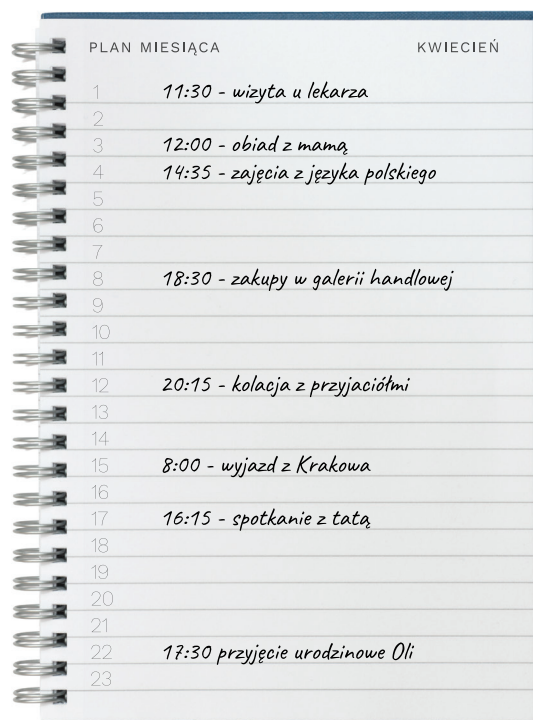 PLAN MIESIĄCA KWIECIEŃ
1 11:30 - wizyta u lekarza
2
3 12:00 - obiad z mamą
4 14:35 - zajęcia z języka polskiego
5
6
7
8 18:30 - zakupy w galerii handlowej
9
10
11
12 20:15 - kolacja z przyjaciółmi
13
14
15 8:00 - wyjazd z Krakowa
16
17 16:15 - spotkanie z tatą
18
19
20
21
22 17:30 przyjęcie urodzinowe Oli
23